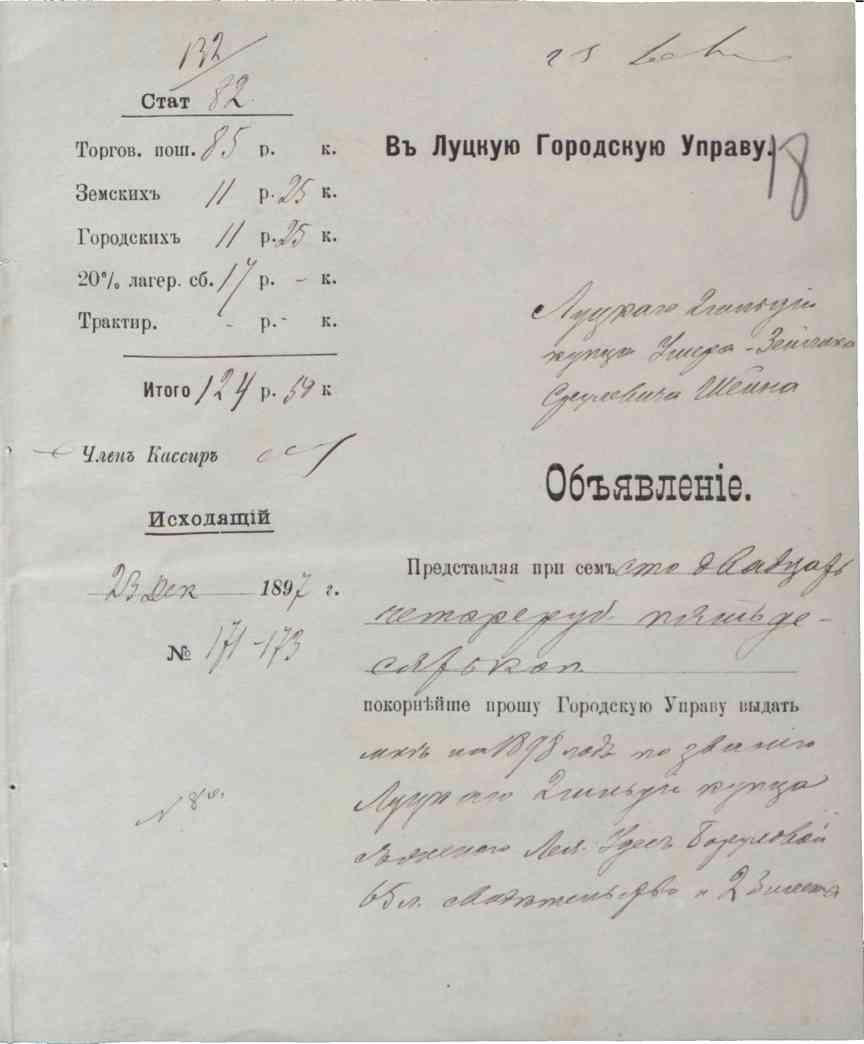 132
Стат 82
Торгов. пош. 85 р. к.
Земскихъ 11 р. 25 к.
Городскихъ 11 р. 25 к.
20% лагер. сб. 17 р. - к.
Трактир. - р. - к.
Итого 124 р. 50 к
Членъ Кассиръ
Исходящій
23 Дек 1897 г.
№ 171-173
Въ Луцкую Городскую Управу.
18
Луцкаго 2 гильдіи
купца Умера-Зейлика
Сруловича Шейна
Объявленіе.
Представляя при семъ сто двадцать
четыре руб. пятьде-
сятъ коп.
покорнѣйше прошу Городскую Управу выдать
мнѣ на 1898 годъ по званію
Луцкаго 2 гильдіи купца
65 л. свидѣтельство и 2 билета